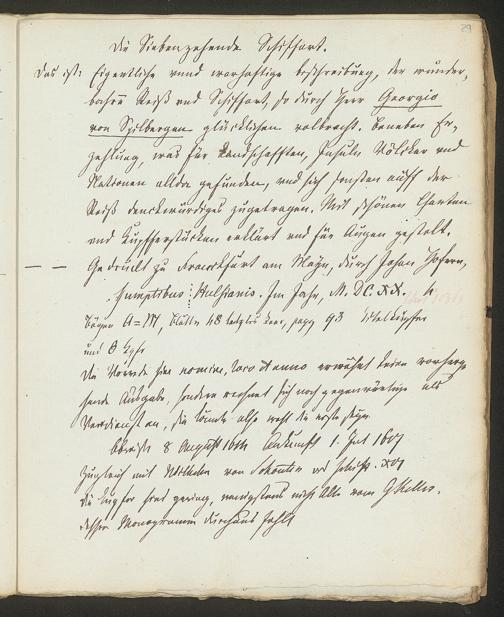 29
Die Siebenzehende Schiffart.
Das ist: Eigentliche vnnd warhafftige beschreibung, der wunder,
bahrn Reiß vnd Schiffart, so durch Herr Georgio
von Spilbergen glücklichen volbracht. Beneben Er-
zehlung, was für Landschafften, Insuln Völcker vnd
Nationen allda gefunden, vnd sich sonsten auff der
Reiß denckwürdiges zugetragen. Mit schönen Charten
vnd Kupfferstücken erklärt vnd für Augen gestelt.
Gedruckt zu Franckfurt am Mayn, durch Johan Hofern,
Sumptibus Hulsianis. Im Jahr, M. DC. XX. 4
Bogen A=M, Blätter 48 letztes leer, pagg 93 Titelkupfer
und 8 Kpfr
Die Vorrede sine nomine, loco et anno erwähnt keine vorherge
hende Ausgabe, sondern rechnet sich noch gegenwärtige als
Verdienst an, sie könnte also wohl die erste seyn.
8 August 1614 Ankunft 1. Jul 1617
Zugleich mit Wilhelm von Schouten
die Kupfer sind gering, wenigstens nicht alle vom
dessen Monogramm durchaus fehlt